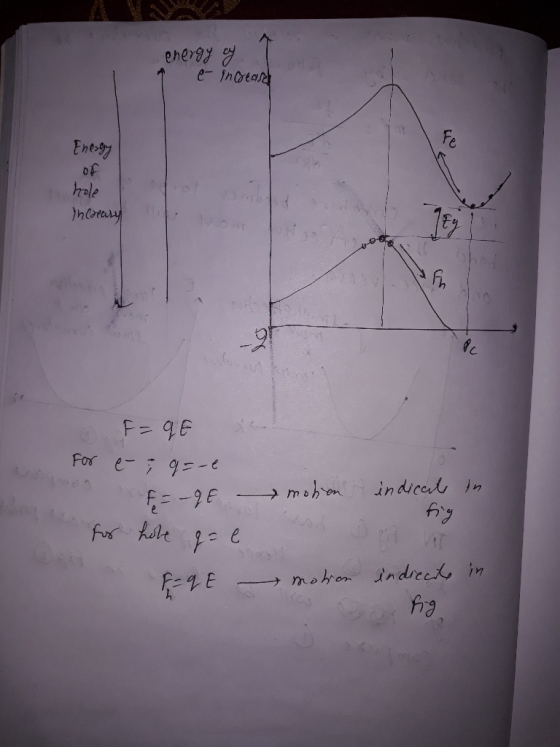 energy of
e⁻ increase
Energy
of
hole
increase
Fe
Eg
Fh
F = qE
For e⁻ ; q = -e
Fe = -qE → motion indicate in
fig
for hole q = e
Fh = qE → motion indicate in
fig